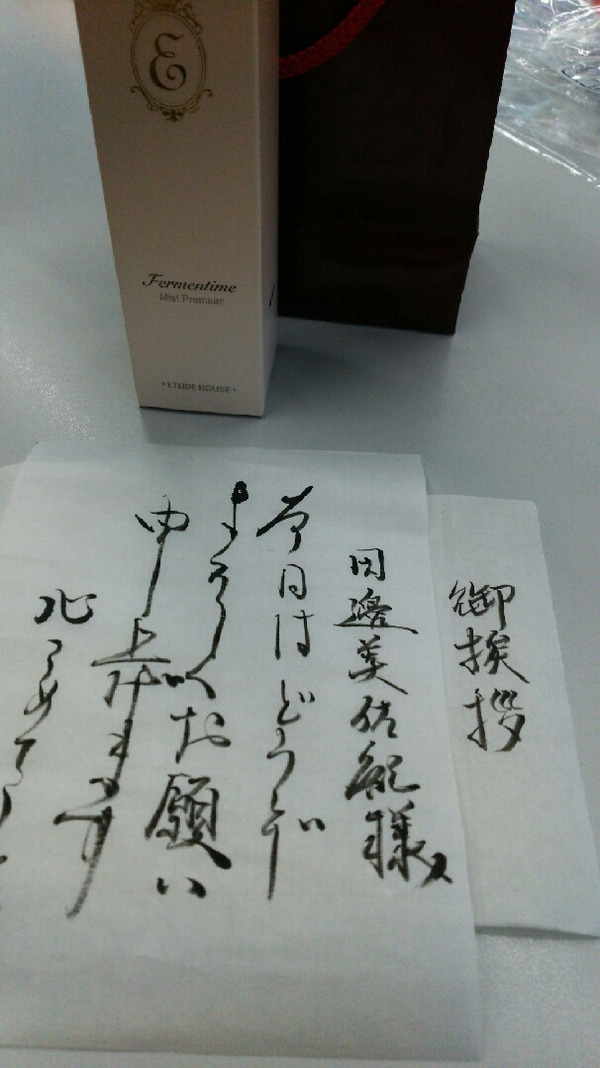 E
Fermentime
Mist Premium
• ETUDE HOUSE •
御挨拶
田邊美佑紀様
今日はどうぞ
よろしくお願い
申し上げます
心こめて